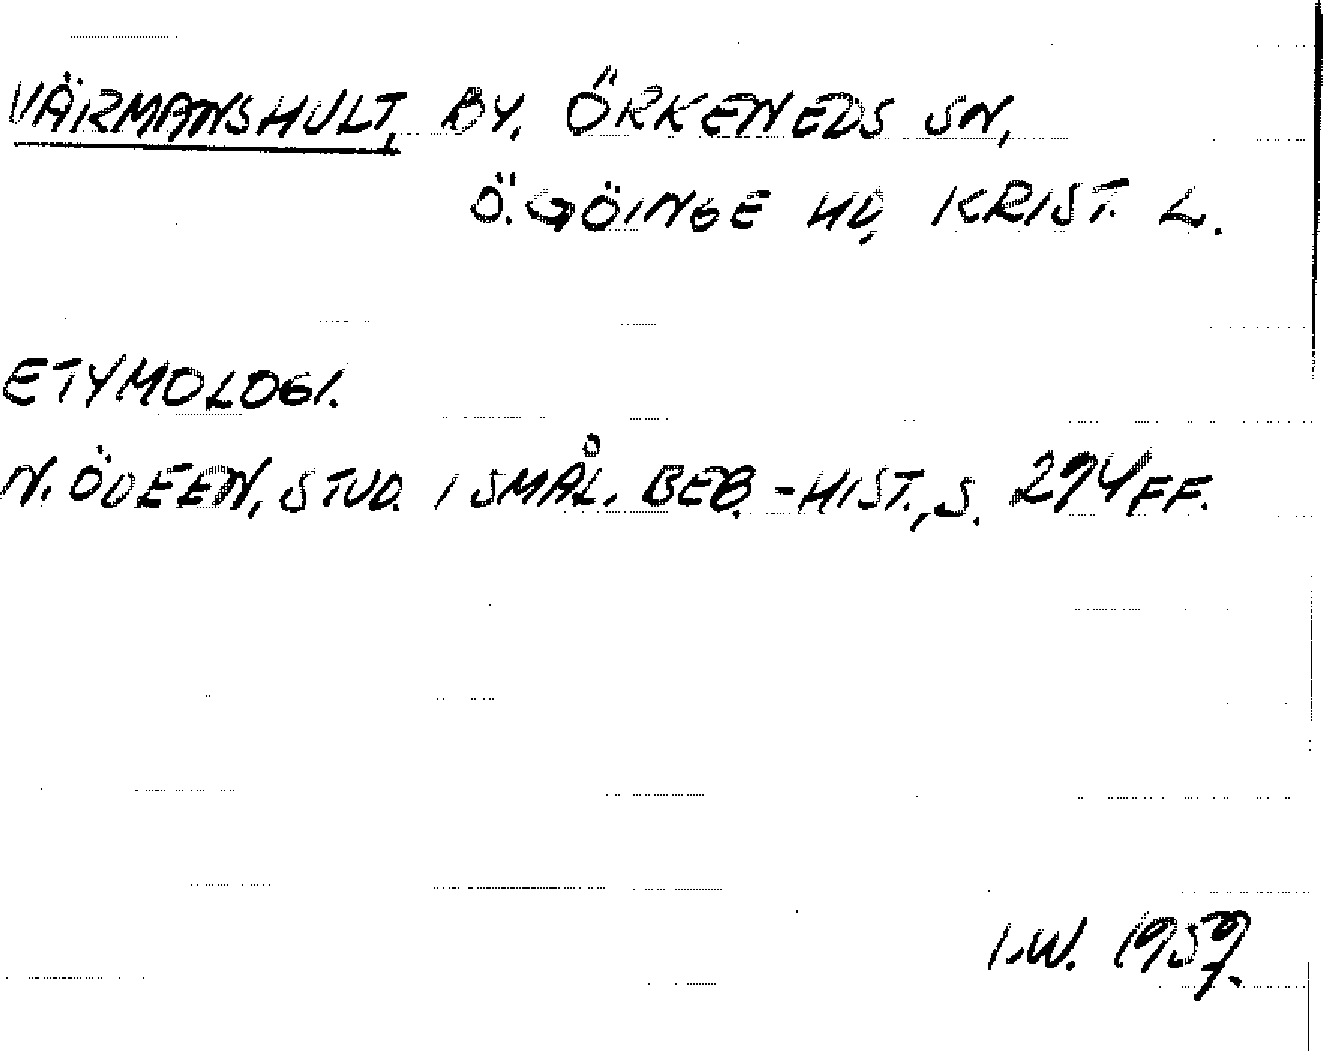 VÄRMANSHULT, BY, ÖRKENEDS SN,
Ö. GÖINGE HD, KRIST. L.
ETYMOLOGI.
N. ÖDEEN, STUD. I SMÅL. BEB.-HIST., S. 294 FF.
I.W. 1959.